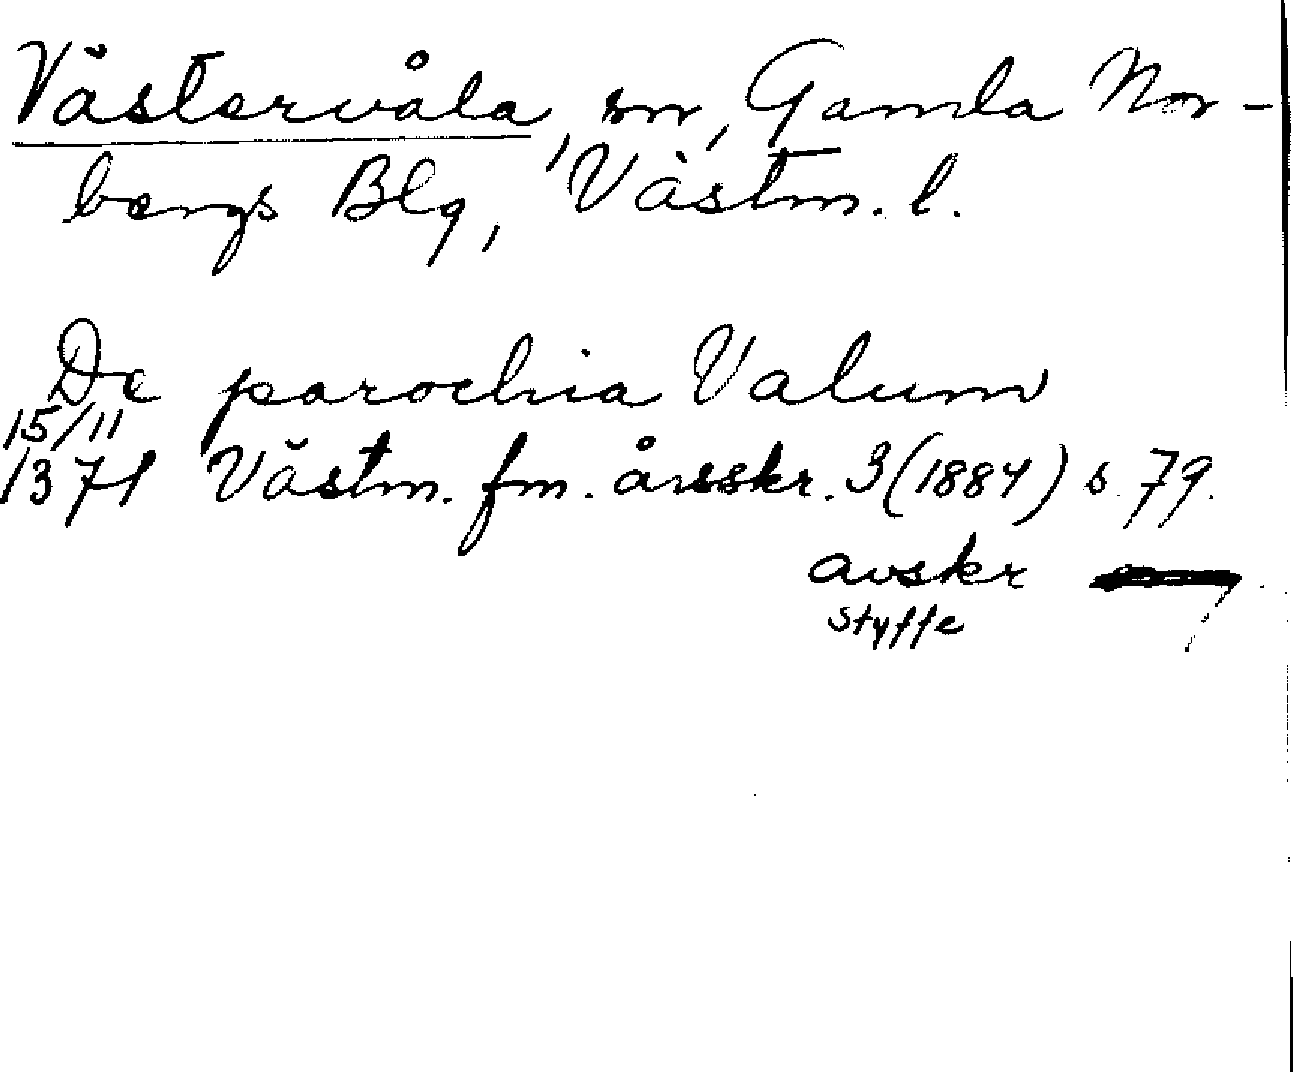 Västervåla, sn, Gamla Nor-
bergs Blg, Västm. l.
De parochia Valum
15/11
1371 Västm. fm. årsskr. 3 (1884) s. 79.
avskr
Styffe